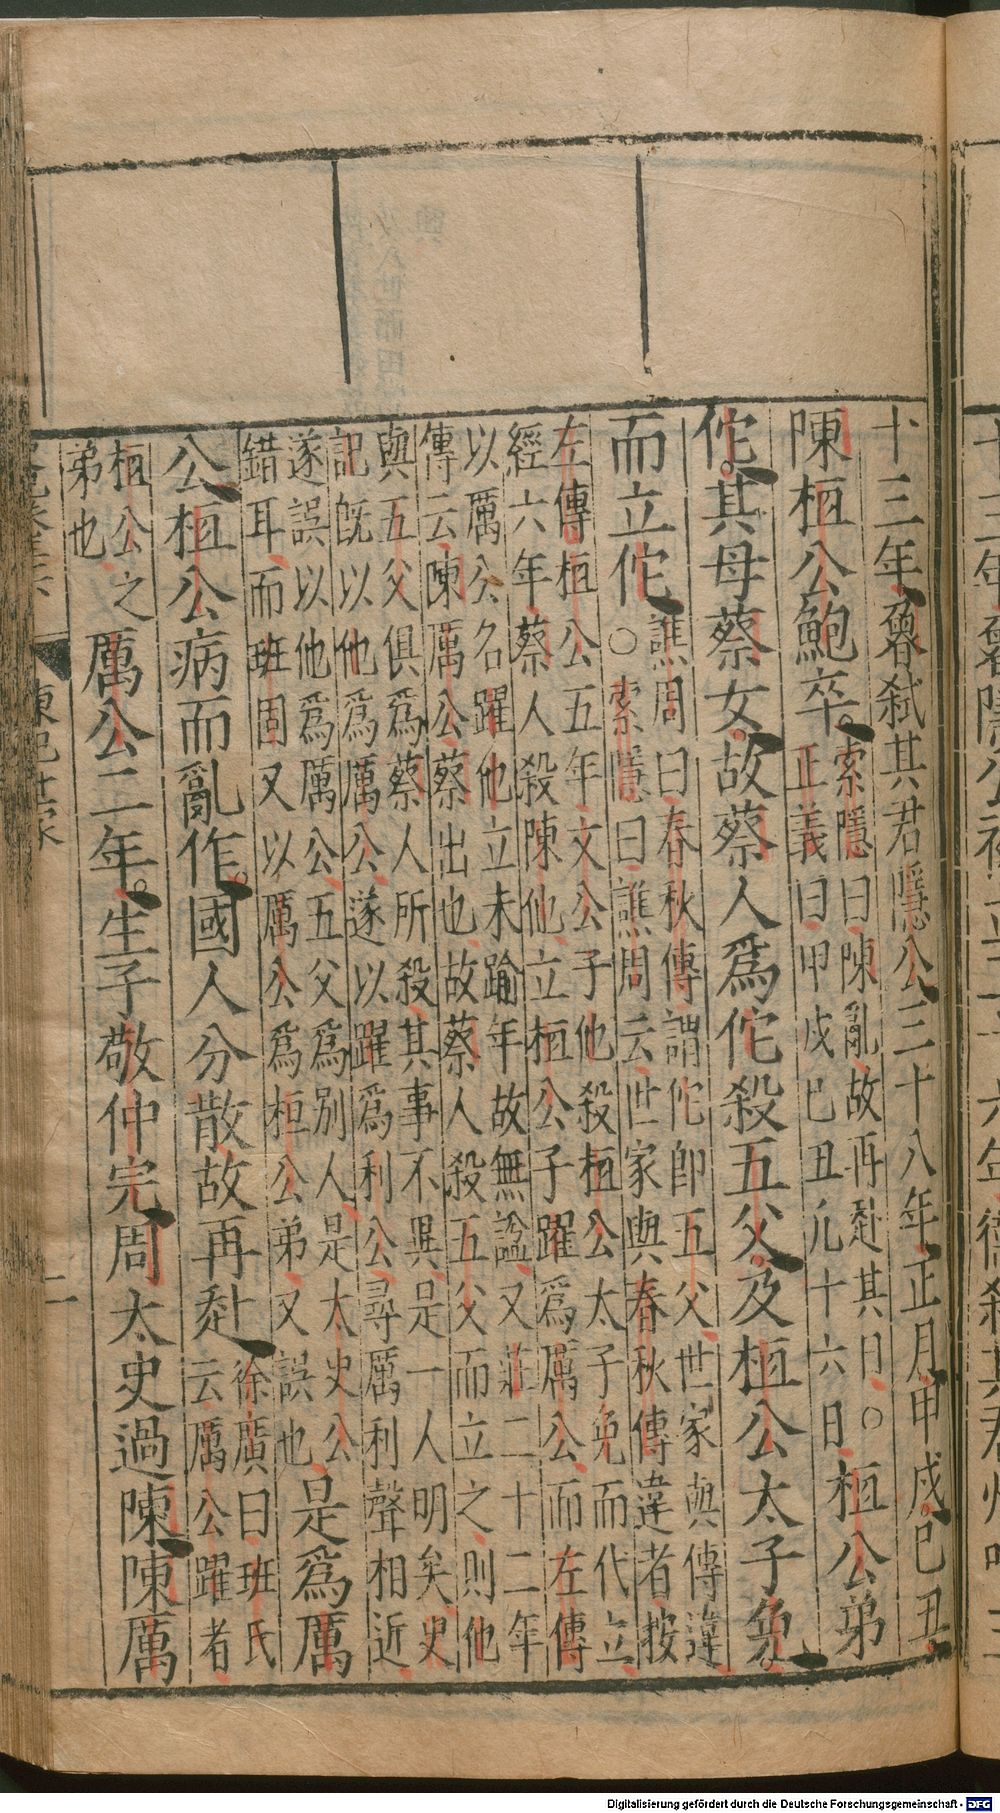 十三年魯弒其君隱公三十八年正月甲戌巳丑
陳桓公鮑卒索隱曰陳亂故再赴其日○
正義曰甲戌巳丑凢十六日桓公弟
佗其母蔡女故蔡人爲佗殺五父及桓公太子免
而立佗譙周曰春秋傳謂佗卽五父世家與傳違
○索隱曰譙周云世家與春秋傳違者按
左傳桓公五年文公子他殺桓公太子免而代立
經六年蔡人殺陳他立桓公子躍爲厲公而左傳
以厲公名躍他立未踰年故無諡又莊二十二年
傳云陳厲公蔡出也故蔡人殺五父而立之則他
與五父俱爲蔡人所殺其事不異是一人明矣史
記旣以他爲厲公遂以躍爲利公尋厲利聲相近
遂誤以他爲厲公五父爲別人是太史公
錯耳而班固又以厲公爲桓公弟又誤也是爲厲
公桓公病而亂作國人分散故再赴徐廣曰班氏
云厲公躍者
桓公之
弟也厲公二年生子敬仲完周太史過陳陳厲
陳杞世家
二
Digitalisierung gefördert durch die Deutsche Forschungsgemeinschaft - DFG